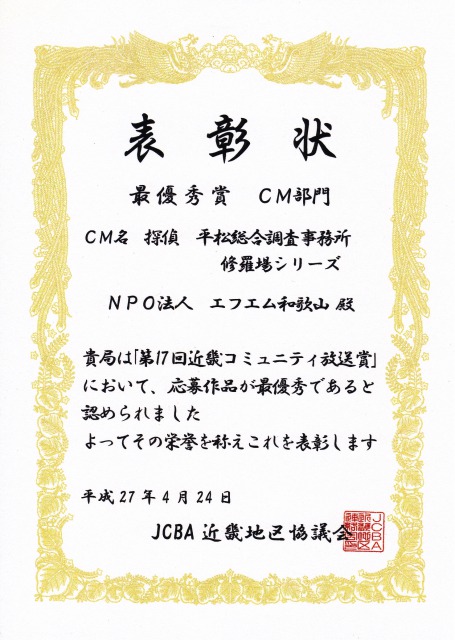 表彰状
最優秀賞　CM部門
CM名　探偵　平松総合調査事務所
修羅場シリーズ
NPO法人　エフエム和歌山 殿
貴局は「第17回近畿コミュニティ放送賞」
において、応募作品が最優秀であると
認められました
よってその栄誉を称えこれを表彰します
平成27年4月24日
JCBA 近畿地区協議会
JCBA